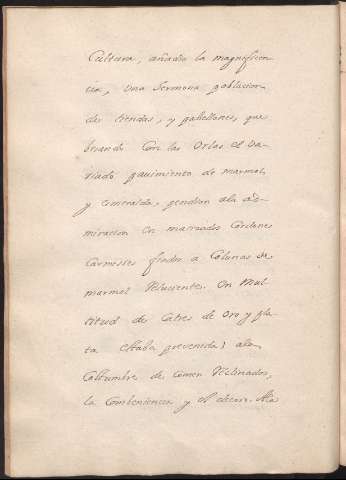 Cultura, añadia la magnificen
cia, una hermosa poblacion
de tiendas, y pabellones, que
besando con las orlas el va-
riado pavimento de marmol,
y esmeralda, pendian ala ad-
miracion en matizados cordones
carmesies fixados a colunas de
marmol relucientes. Un mul-
titud de catres de oro y pla-
ta estaba prevenida, a la
costumbre de comer reclinados,
la combeniencia y el decoro. Alla